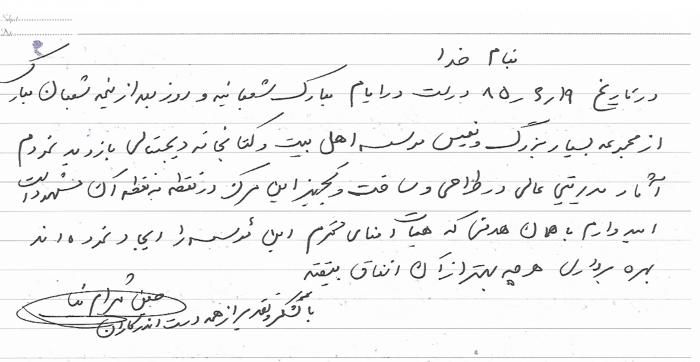 بنام خدا
در تاریخ ۸۵٫۶٫۱۹ درست در ایام مبارک شعبانیه و روز بعد از نیمه شعبان مبارک
از مجموعه بسیار بزرگ و نفیس موسسه اهل بیت و کتابخانه دیجیتالی بازدید نمودم
آثار مدیریتی عالی در طراحی و ساخت و تجهیز این مرکز در نقطه نقطه آن مشهود است
امیدوارم با همان هدفی که هیأت امنای محترم این موسسه را ایجاد نموده اند
بهره برداری هرچه بهتر از آن اتفاق بیفتد
با تشکر و تقدیر از همه دست اندرکاران